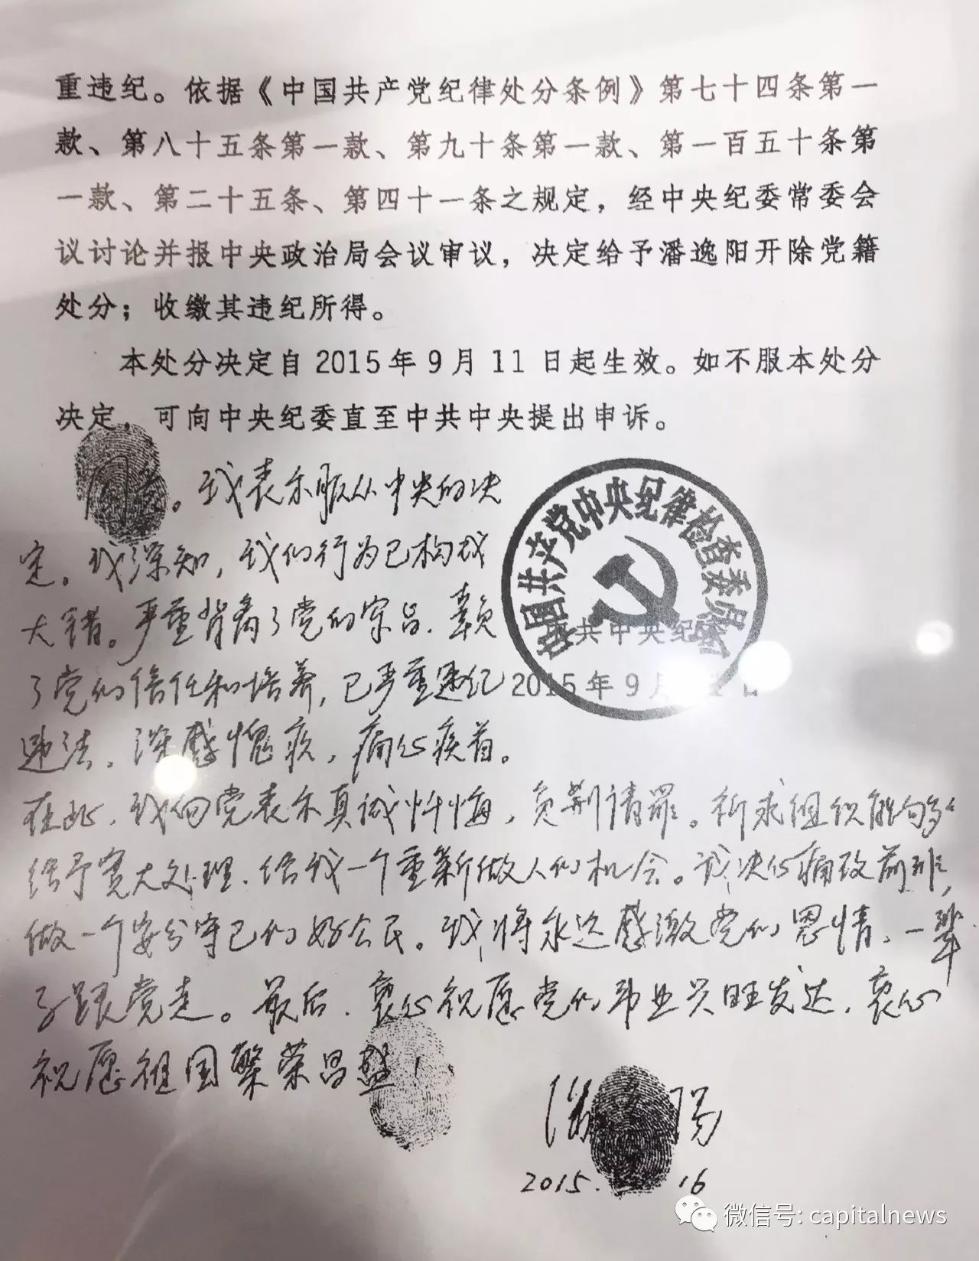 重违纪。依据《中国共产党纪律处分条例》第七十四条第一
款、第八十五条第一款、第九十条第一款、第一百五十条第
一款、第二十五条、第四十一条之规定，经中央纪委常委会
议讨论并报中央政治局会议审议，决定给予潘逸阳开除党籍
处分；收缴其违纪所得。
本处分决定自2015年9月11日起生效。如不服本处分
决定，可向中央纪委直至中共中央提出申诉。
同意。我表示服从中央的决
定。我深知，我的行为已构成
大错。严重背离了党的宗旨、辜负
了党的信任和培养，已严重违纪
违法，深感愧疚，痛心疾首。
中国共产党中央纪律检查委员会
中共中央纪
2015年9月 日
在此，我向党表示真诚忏悔，负荆请罪。祈求组织能够
给予宽大处理，给我一个重新做人的机会。我决心痛改前非，
做一个安分守己的好公民。我将永远感激党的恩情，一辈
子跟党走。最后，衷心祝愿党的事业兴旺发达，衷心
祝愿祖国繁荣昌盛！
潘 阳
2015. 16
微信号: capitalnews